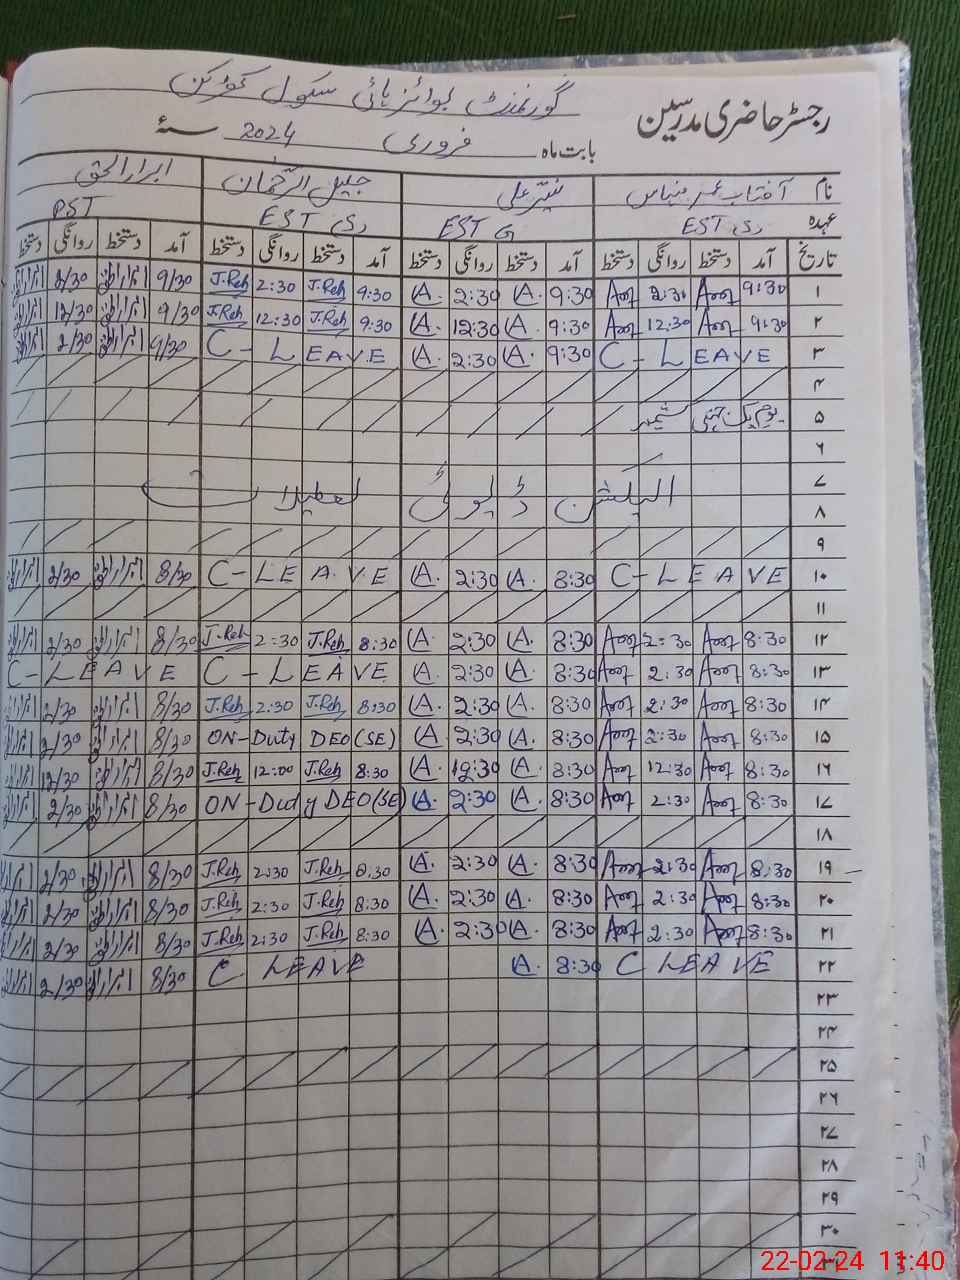 گورنمنٹ بوائز ہائی سکول
رجسٹر حاضری مدرسین
بابت ماہ فروری 2024 سنۂ
نام آفتاب عمر نیر علی جمیل الرحمان ابرارالحق
عہدہ EST EST G EST PST
تاریخ آمد دستخط روانگی دستخط آمد دستخط روانگی دستخط آمد دستخط روانگی دستخط آمد دستخط روانگی دستخط
۱ 9:30 2:30 9:30 A. 2:30 A. 9:30 J.Reh 2:30 J.Reh 9/30 2/30
۲ 9:30 12:30 9:30 A. 12:30 A. 9:30 J.Reh 12:30 J.Reh 9/30 12/30
۳ C - LEAVE 9:30 A. 2:30 A. C - LEAVE 9/30 2/30
۴
۵ یوم یک جہتی کشمیر
۶
۷ الیکشن ڈیوٹی تعطیلات
۸
۹
۱۰ C - LEAVE 8:30 A. 2:30 A. C - LEAVE 8/30 2/30
۱۱
۱۲ 8:30 2:30 8:30 A. 2:30 A. 8:30 J.Reh 2:30 J.Reh 8/30 2/30
۱۳ 8:30 2:30 8:30 A. 2:30 A. C - LEAVE C - LEAVE
۱۴ 8:30 2:30 8:30 A. 2:30 A. 8:30 J.Reh 2:30 J.Reh 8/30 2/30
۱۵ 8:30 2:30 8:30 A. 2:30 A. ON-Duty DEO(SE) 8/30 2/30
۱۶ 8:30 12:30 8:30 A. 12:30 A. 8:30 J.Reh 12:00 J.Reh 8/30 12/30
۱۷ 8:30 2:30 8:30 A. 2:30 A. ON-Duty DEO(SE) 8/30 2/30
۱۸
۱۹ 8:30 2:30 8:30 A. 2:30 A. 8:30 J.Reh 2:30 J.Reh 8/30 2/30
۲۰ 8:30 2:30 8:30 A. 2:30 A. 8:30 J.Reh 2:30 J.Reh 8/30 2/30
۲۱ 8:30 2:30 8:30 A. 2:30 A. 8:30 J.Reh 2:30 J.Reh 8/30 2/30
۲۲ C LEAVE 8:30 A. C LEAVE 8/30 2/30
۲۳
۲۴
۲۵
۲۶
۲۷
۲۸
۲۹
۳۰
۳۱
22-02-24 11:40